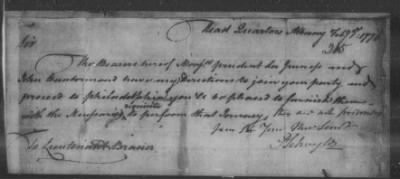 Head Quarters Albany Feby 9th 1776
Sir
The Bearers hereof Monsr prudent La Juness and
John Hantormond have my Directions to join your party and
proceed to philadelphia you'll be pleased to furnish them
with the Necessary requisite to perform that Journey they are not prisoners
I am Sir Your Hum Servt
P Schuyler
To Lieutenant